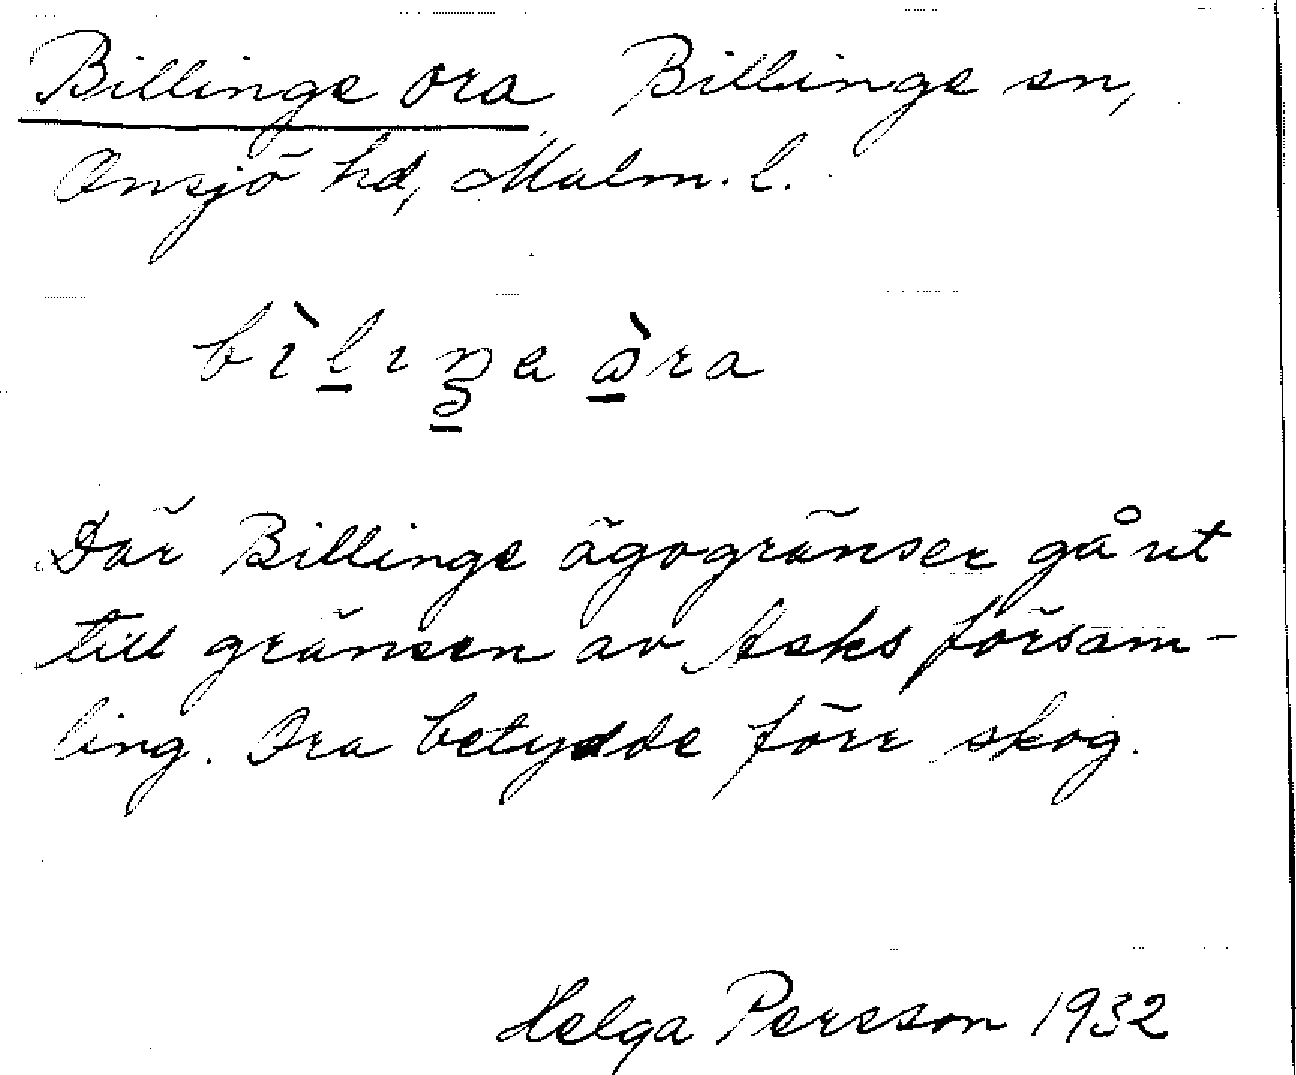 Billinge ora Billinge sn,
Onsjö hd, Malm. l.
Där Billinge ägogränser gå ut
till gränsen av Asks försam-
ling. Ora betydde förr skog.
Helga Persson 1932